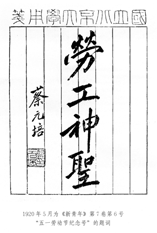 國立北京大學用箋
勞工神聖
蔡元培
1920年5月为《新青年》第7卷第6号
“五一劳动节纪念号”的题词